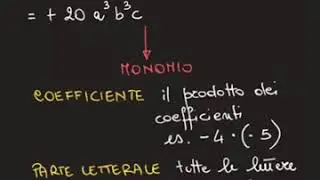 = + 20 a³ b³ c
MONOMIO
COEFFICIENTE il prodotto dei
coefficienti
es. -4 · (-5)
PARTE LETTERALE tutte le lettere